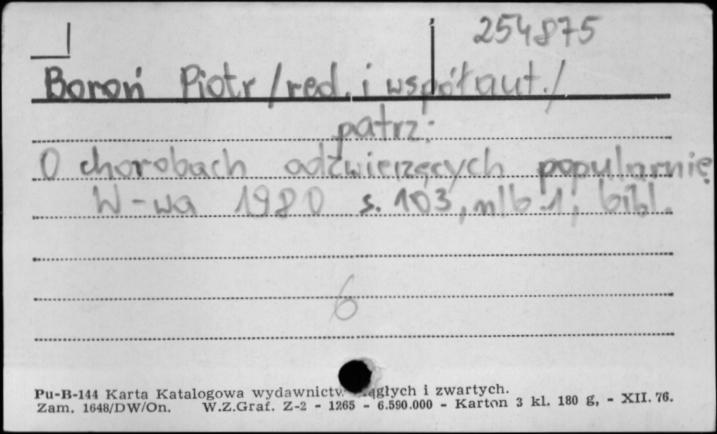 254875
Boroń Piotr /red. i współaut./
patrz:
O chorobach odzwierzęcych popularnię
W-wa 1980 s. 103, nlb 1, bibl.
6
Pu-B-144 Karta Katalogowa wydawnictw ciągłych i zwartych.
Zam. 1648/DW/On. W.Z.Graf. Z-2 - 1265 - 6.590.000 - Karton 3 kl. 180 g, - XII. 76.